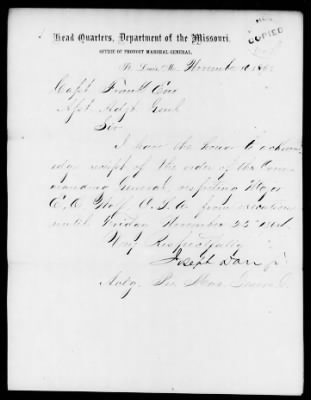 COPIED
Head Quarters, Department of the Missouri.
OFFICE OF PROVOST MARSHAL GENERAL,
St. Louis, Mo., November 10 186
Capt Frank Eno
Asst Adjt Genl
Sir
I have the honor to acknow
ledge receipt of the order of the Com
manding General, respiting Major
from execution
until Friday November 25" inst.
Very Respectfully
Joseph Darr Jr
Actg. Pro. Mar. General.